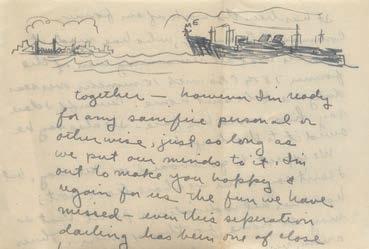 ME
together – however I'm ready
for any sacrifice personal or
otherwise, just so long as
we put our minds to it, I'm
out to make you happy &
regain for us the fun we have
missed – even this seperation
darling has been one of close